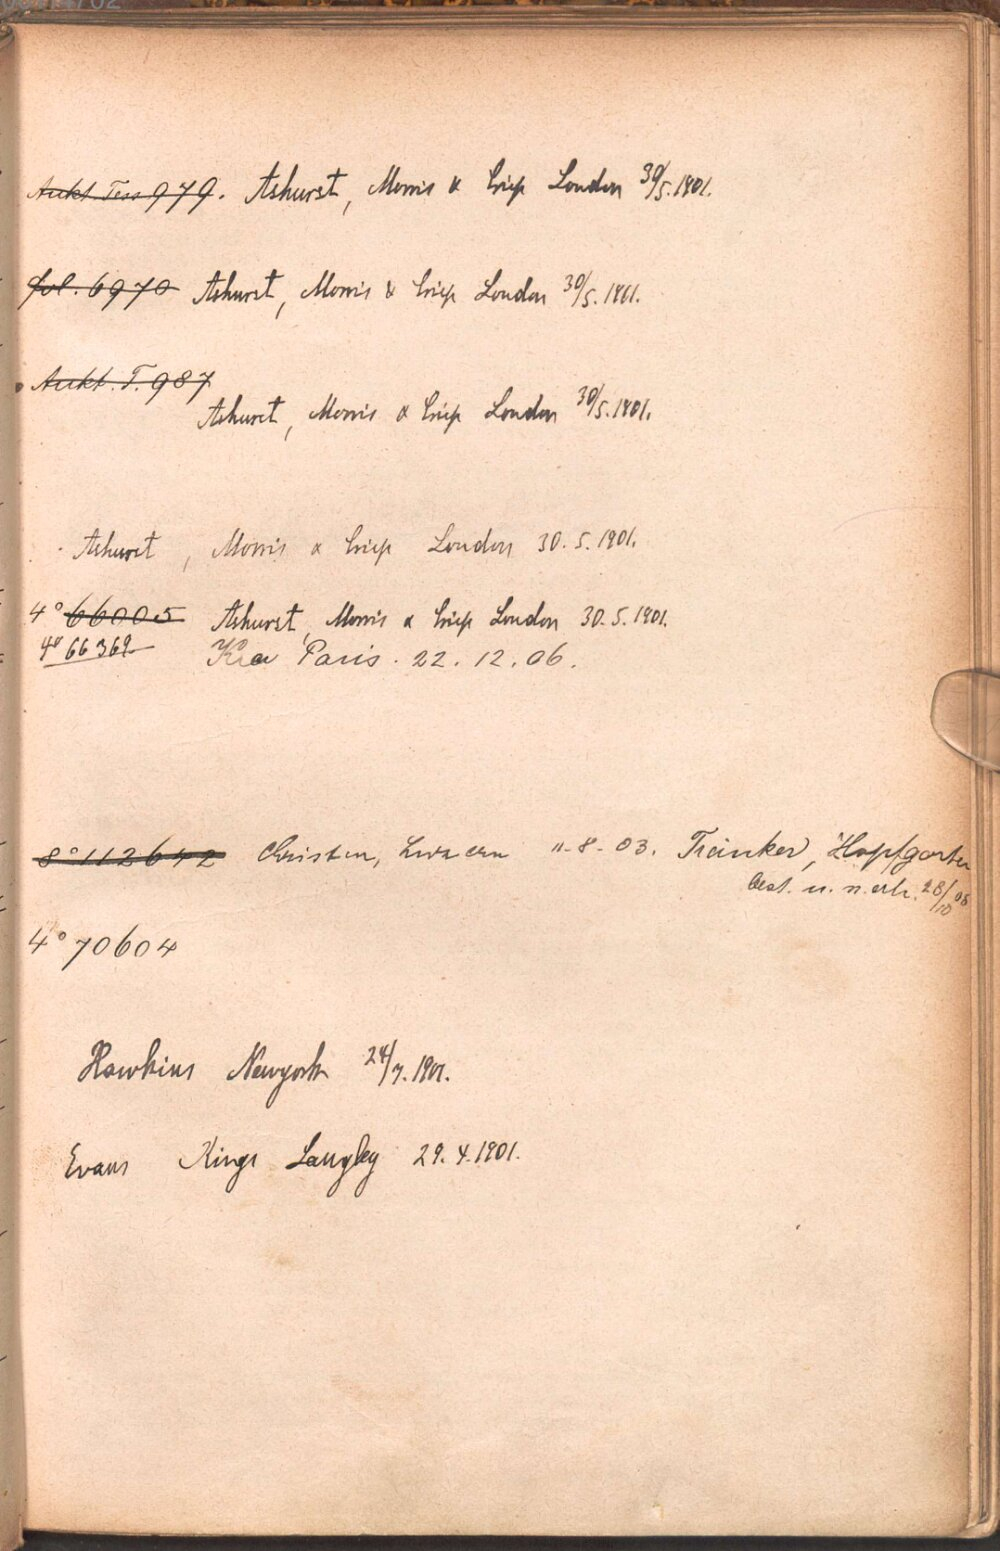 Aukt. Tess 979. Ashurst, Morris & Crisp London 30/5.1901.
fol. 6970 Ashurst, Morris & Crisp London 30/5.1901.
Aukt. T. 987
Ashurst, Morris & Crisp London 30/5.1901.
Ashurst, Morris & Crisp London 30.5.1901.
4° 66005 Ashurst, Morris & Crisp London 30.5.1901.
4° 66369 Paris. 22.12.06.
8° 112642 Christen, Luzern 11.8.03. Trainker, Hopfgarten
best. u. n. erh. 28/10 08
4° 70604
Hawkins Newyork 24/7.1901.
Evans Kings Langley 29.4.1901.